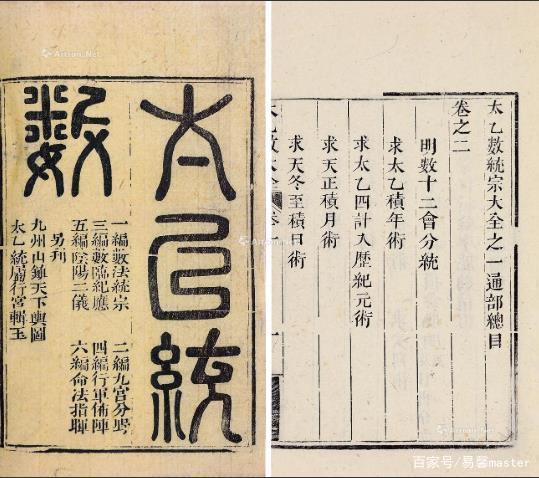 太乙統
數
一編數法統宗 二編九宮分野
三編數臨紀應 四編行軍佈陣
五編陰陽二儀 六編命法指
另刊
九州山鎮天下輿圖
太乙統廟行宮輯玉
太乙數統宗大全之一通部總目
卷之二
明數十二會分統
求太乙積年術
求太乙四計入歷紀元術
求天正積月術
求天冬至積日術
太乙數大全 卷
Artron.Net
Artron.Net
百家号/易馨master